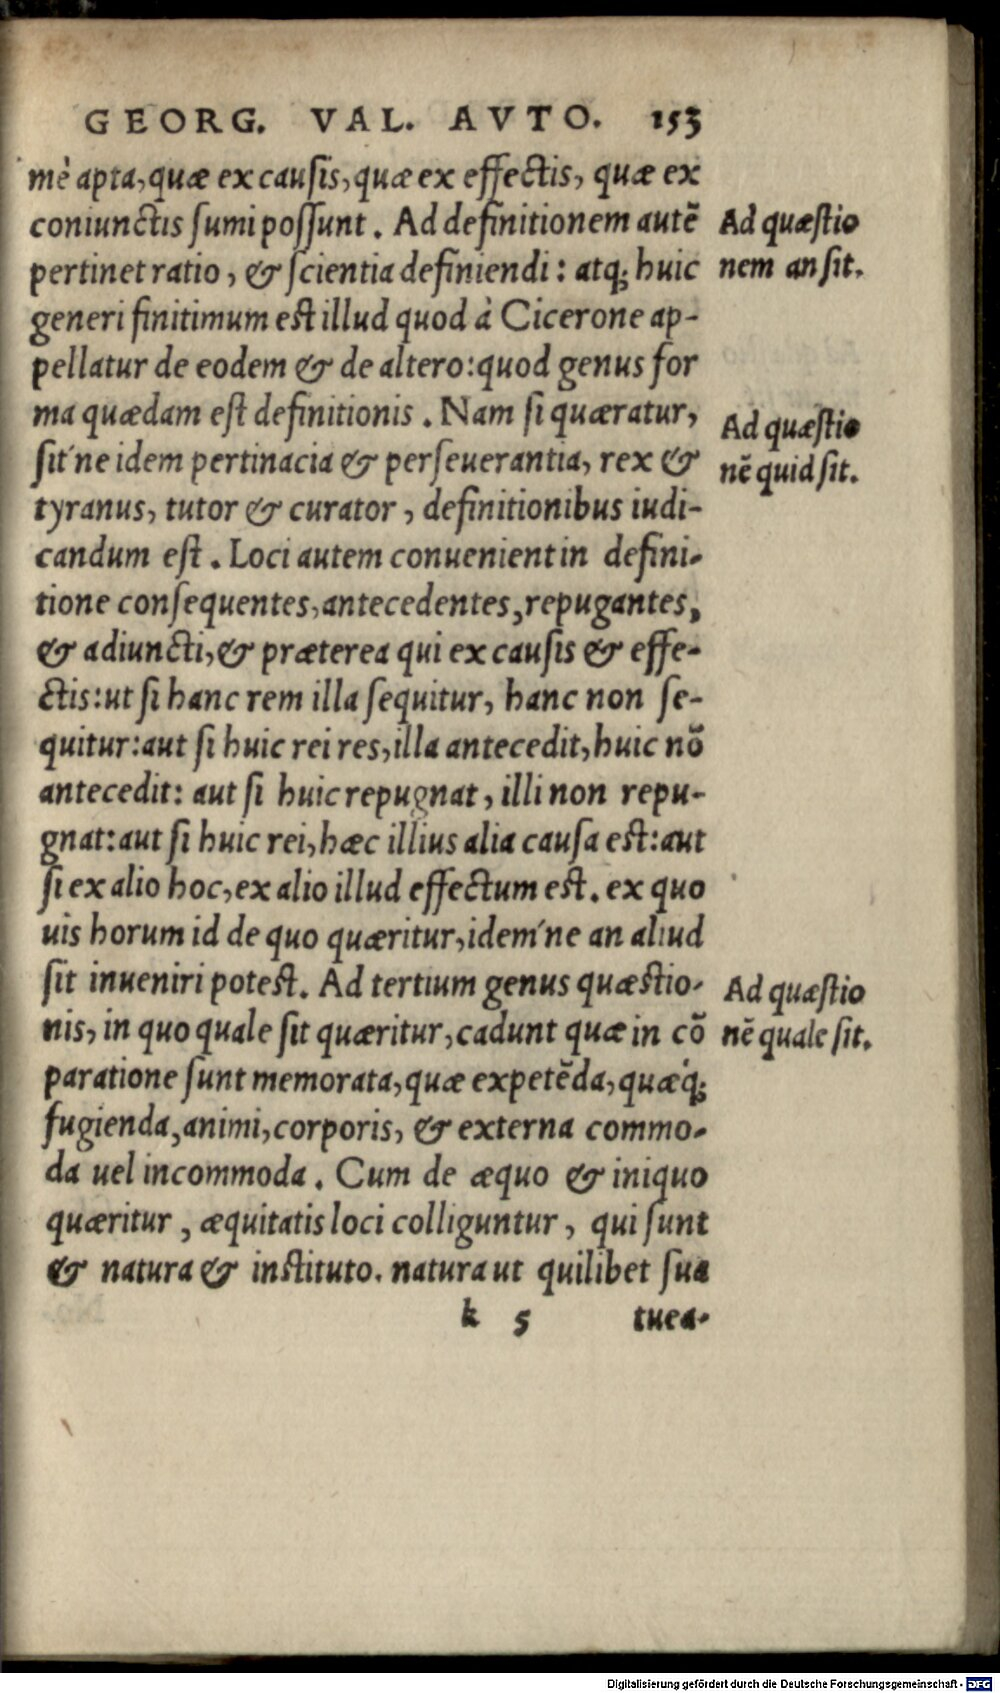 GEORG. VAL. AVTO. 153
mè apta, quæ ex causis, quæ ex effectis, quæ ex
coniunctis sumi possunt. Ad definitionem autē
pertinet ratio, & scientia definiendi: atq; huic
generi finitimum est illud quod à Cicerone ap-
pellatur de eodem & de altero: quod genus for
ma quædam est definitionis. Nam si quæratur,
sit'ne idem pertinacia & perseuerantia, rex &
tyranus, tutor & curator, definitionibus iudi-
candum est. Loci autem conuenient in defini-
tione consequentes, antecedentes, repugantes,
& adiuncti, & præterea qui ex causis & effe-
ctis: ut si hanc rem illa sequitur, hanc non se-
quitur: aut si huic rei res, illa antecedit, huic nō
antecedit: aut si huic repugnat, illi non repu-
gnat: aut si huic rei, hæc illius alia causa est: aut
si ex alio hoc, ex alio illud effectum est. ex quo
uis horum id de quo quæritur, idem'ne an aliud
sit inueniri potest. Ad tertium genus quæstio-
nis, in quo quale sit quæritur, cadunt quæ in cō
paratione sunt memorata, quæ expetēda, quæq́;
fugienda, animi, corporis, & externa commo-
da uel incommoda. Cum de æquo & iniquo
quæritur, æquitatis loci colliguntur, qui sunt
& natura & instituto. natura ut quilibet sua
k 5 tuea-
Ad quæstio
nem an sit.
Ad quæstio
nē quid sit.
Ad quæstio
nē quale sit.
Digitalisierung gefördert durch die Deutsche Forschungsgemeinschaft - DFG